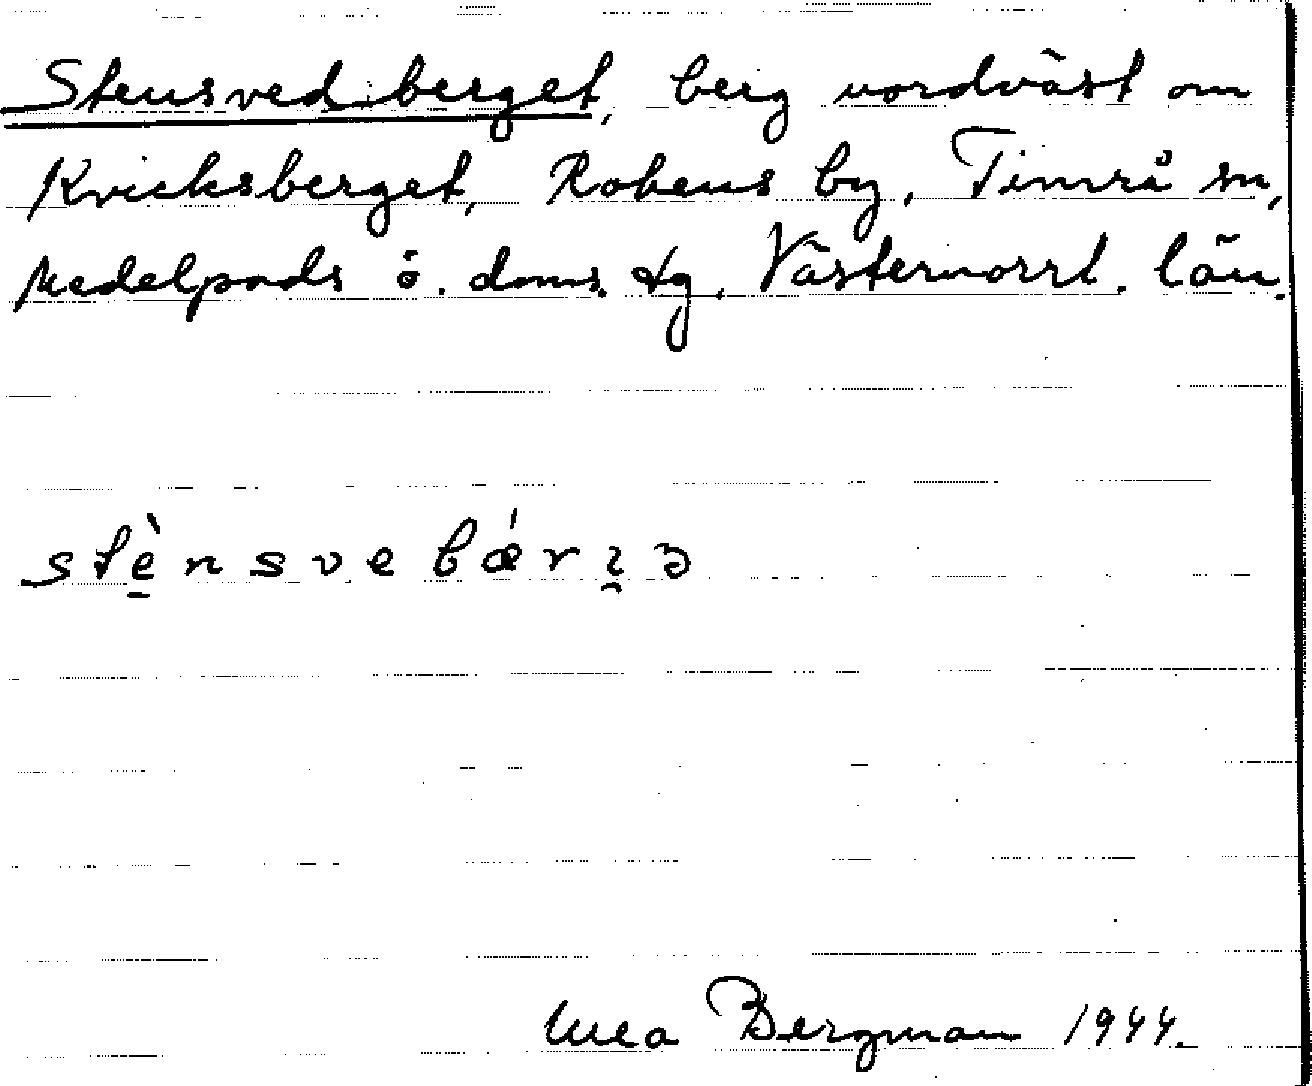 Stensvedberget, berg nordväst om
Kvicksberget, Rokens by, Timrå sn,
Medelpads ö. doms. tg, Västernorrl. län.
stènsvebǽrıə
Mea Bergman 1944.